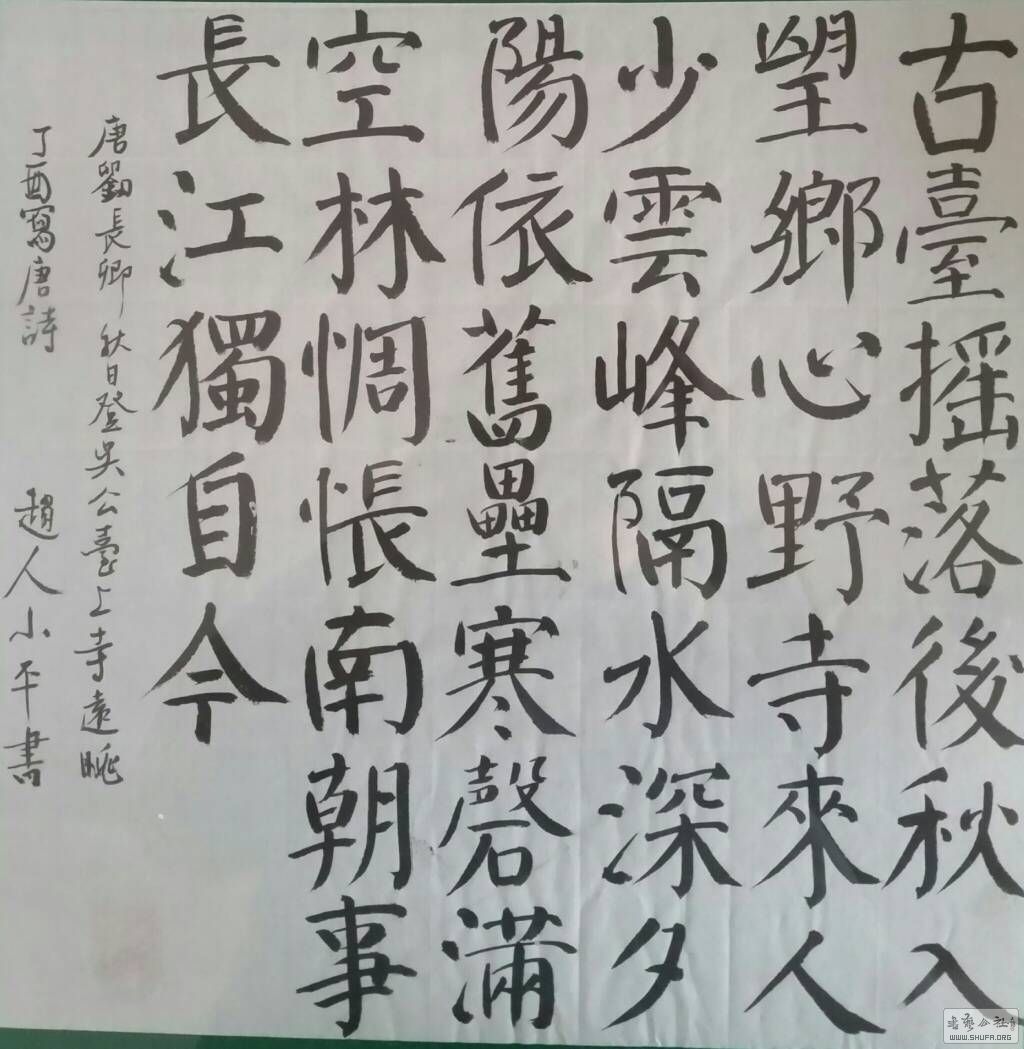 古臺摇落後秋入
望鄉心野寺來人
少雲峰隔水深夕
陽依舊壘寒磬滿
空林惆悵南朝事
長江獨自今
唐劉長卿秋日登吳公臺上寺遠眺
丁酉寫唐詩 趙人小平書
WWW.SHUFA.ORG